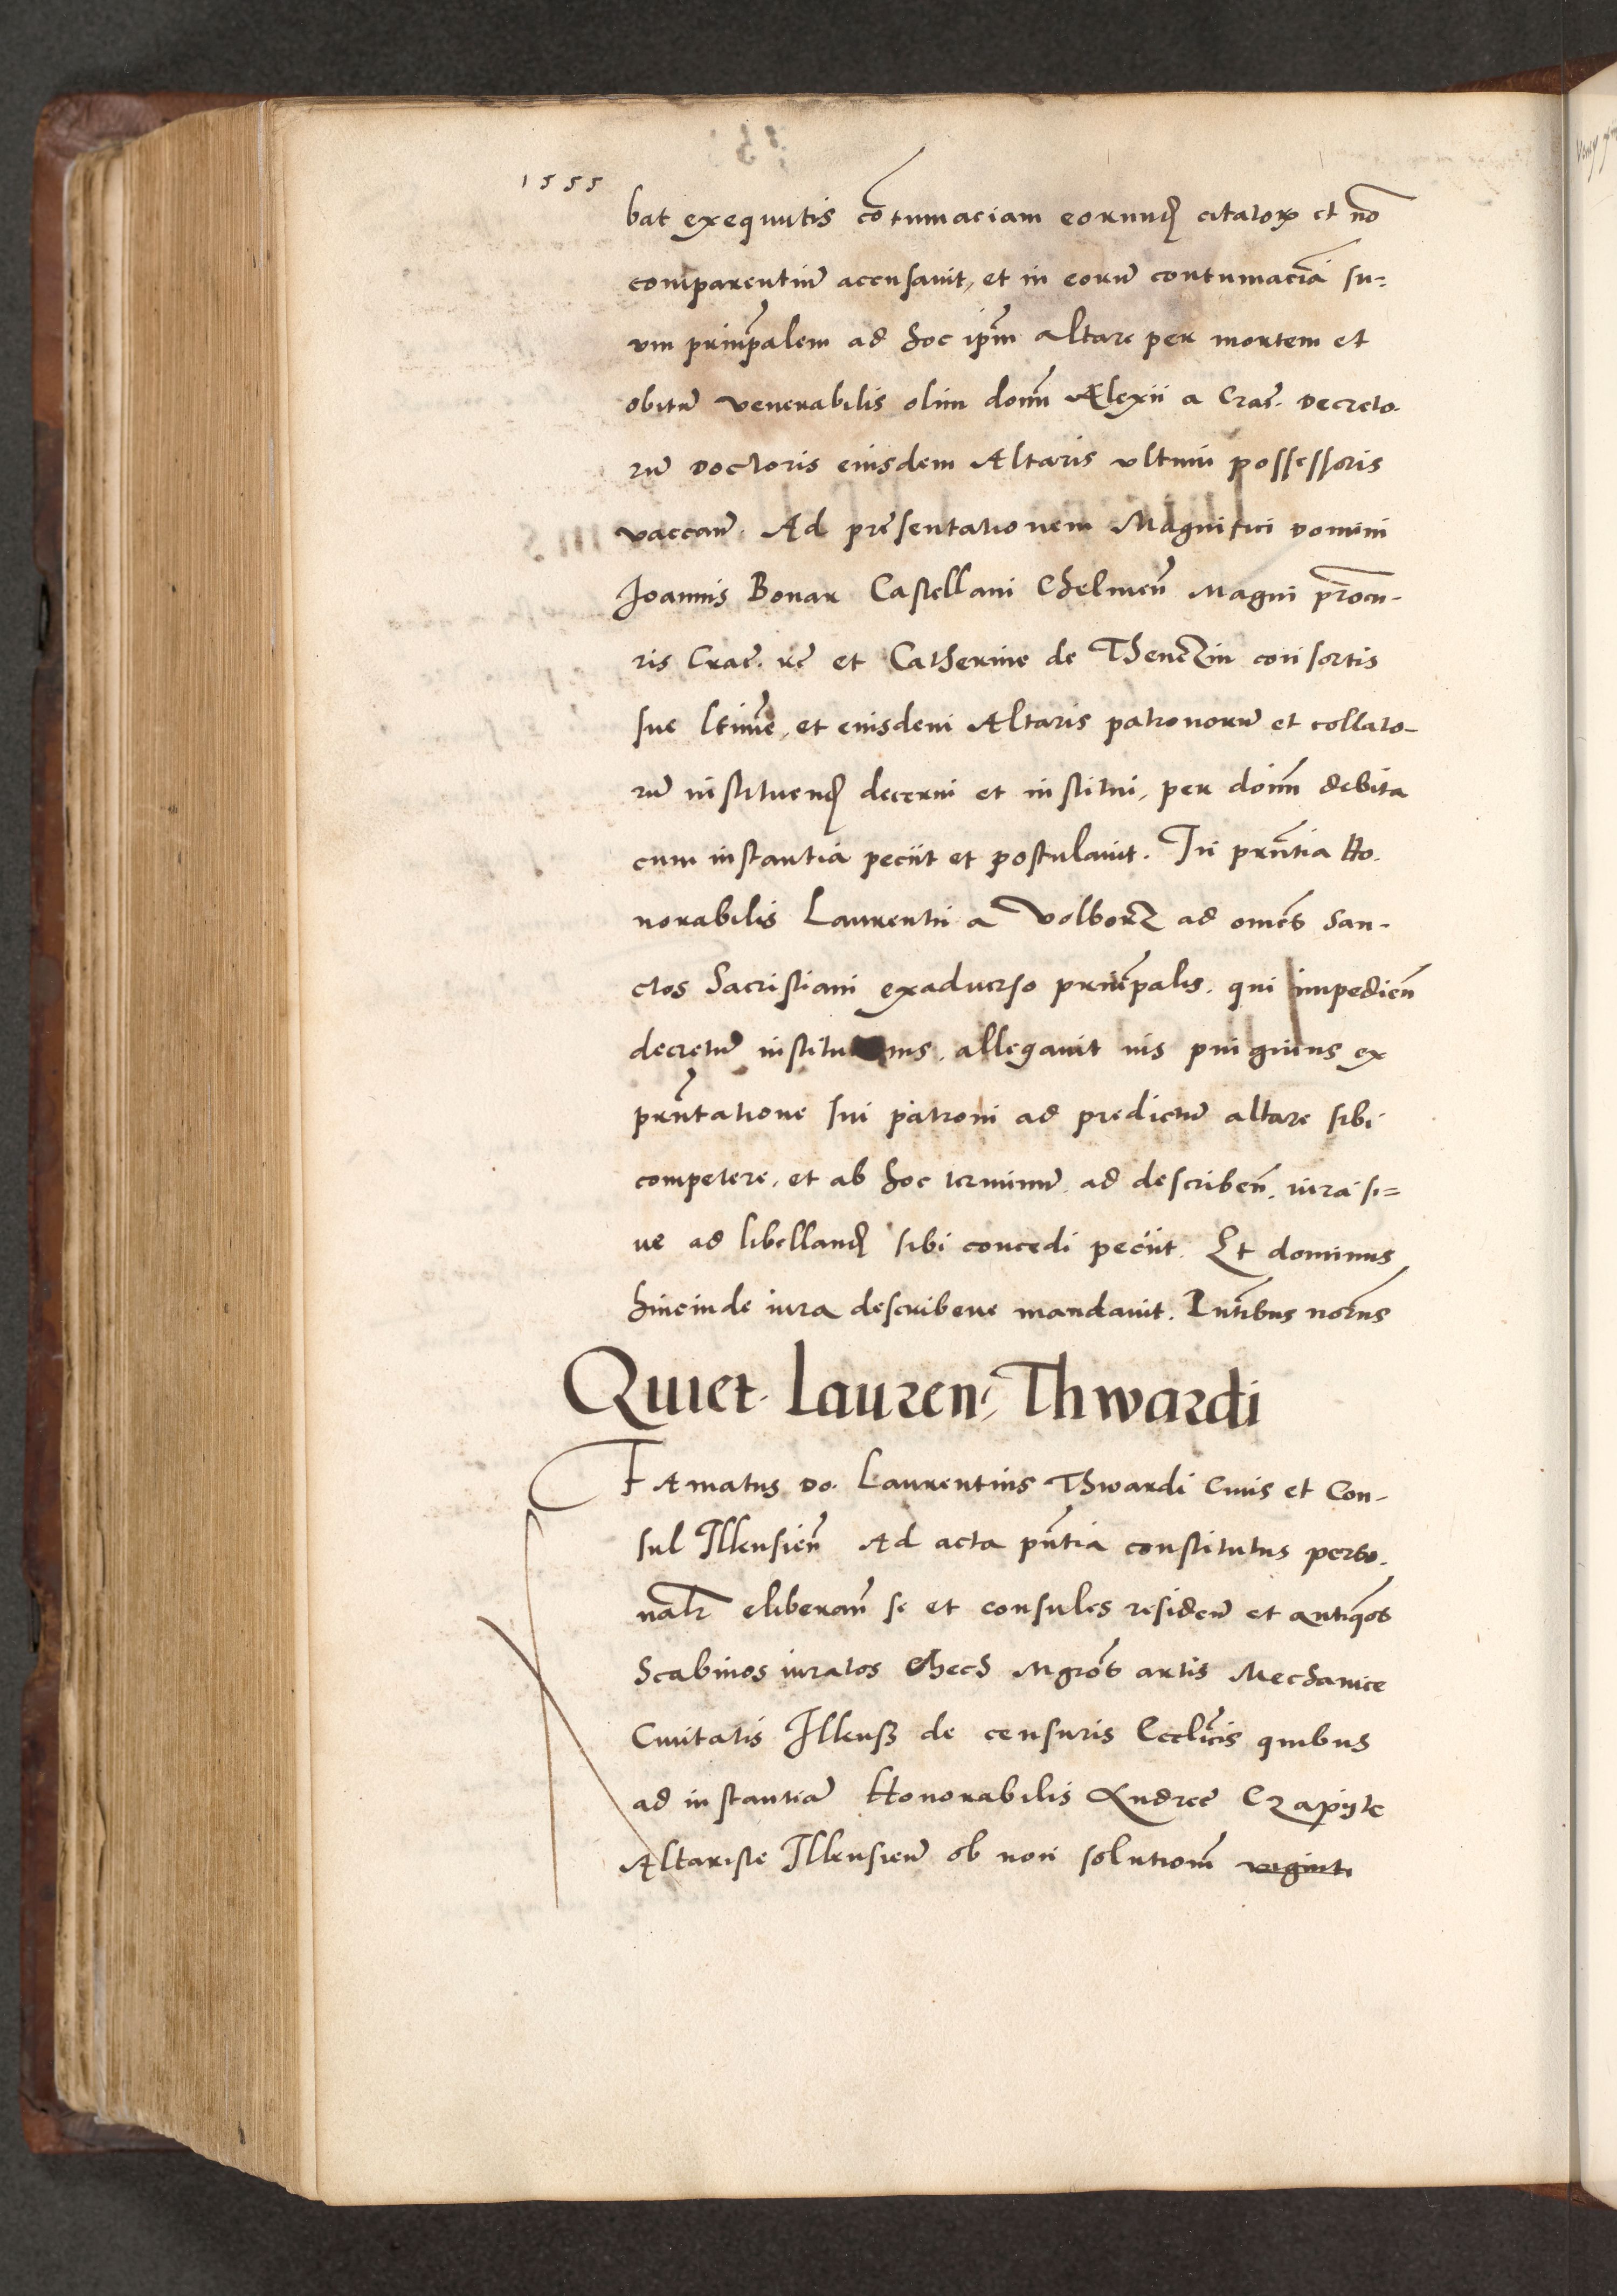 1555
bat exequutis cõtumaciam eorund citator et nõ
comparentiũ accusauit, et in eorũ contumaciã su-
um prinᵱalem ad hoc ip̃m altare per mortem et
obitũ venerabilis olim dom̃ Alexii a Crac̃. Decreto-
rũ Doctoris eiusdem Altaris vltimi possessoris
vaccan̄. Ad presentationem Magnifici Domini
Joannis Bonar Castellani Chelmen̄ Magni procu-
ris Crac̃. rc̃ et Catherine de Thenczin consortis
sue ltim̃e, et eiusdem Altaris patronorũ et collato-
rũ instituend decerni et institui, per dom̃ debita
cum instantia peciit et postulauit. In prñtia Ho-
norabilis Laurentii a Volborz ad om̃es San-
ctos Sacristiani exaduerso princ̃palis. qui impedien̄
decretũ institu nis. allegauit ius pinguius ex
prñtatione sui patroni ad predictũ altare sibi
competere, et ab hoc terminũ ad describen̄. iura si-
ue ad libelland sibi concedi peciit. Et dominus
hincinde iura describere mandauit. Pñtibus nor̃us
Quiet. Lauren, Thwardi
Famatus Do. Laurentius Thwardi Ciuis et Con-
sul Illkusien̄ Ad acta pñtia constitutus perso-
nalr̃ eliberan̄ se et consules residen̄ et antiq̃os
Scabinos iuratos Mgrõs artis Mechanice
Ciuitatis Illkusz de censuris Eccl̃icis quibus
ad instantiã Honorabilis Andree Czapyte
Altariste Illkusien̄ ob non solutionẽ viginti